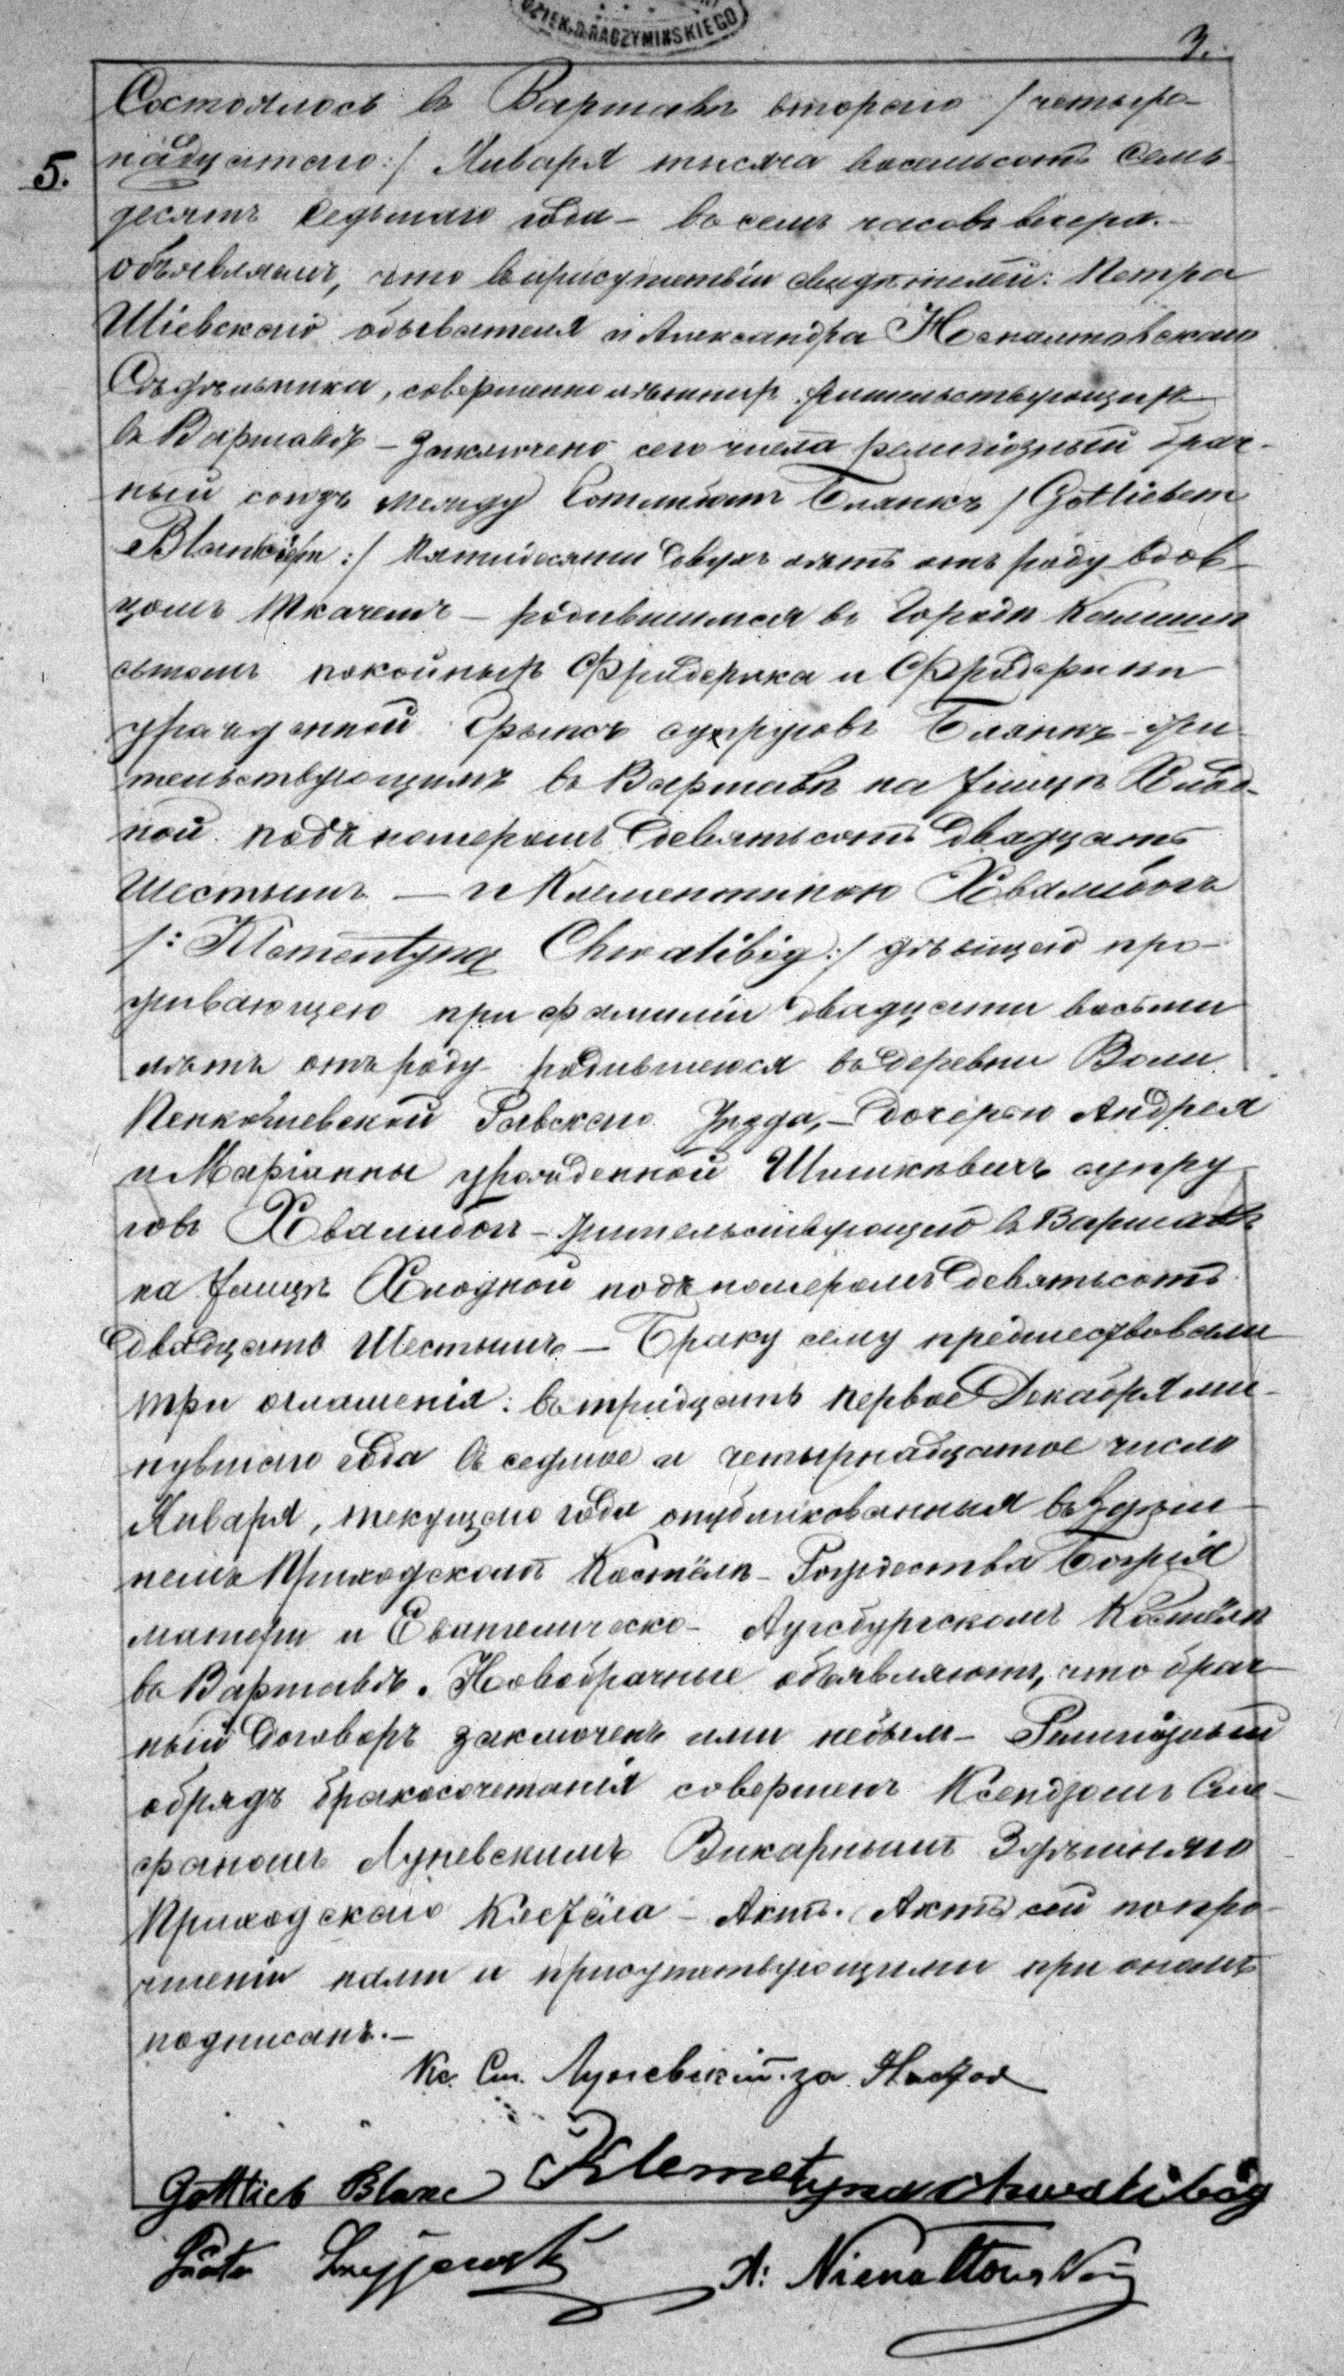 DZIEK. D. RADZYMIŃSKIEGO
3.
Состоялось въ Варшавѣ втораго /четыр-
5.
надцатаго:/ Января тысяча восемьсотъ семь-
десятъ седьмаго года – въ семь часовъ вечера. –
объявляемъ, что въ присутствіи свидѣтелей: Петра
обывателя и Александра
совершеннолѣтнихъ жительствующихъ
въ Варшавѣ – заключено сего числа религіозный брач-
ный союзъ между Готлибомъ Бланкъ /Gotliebem
:/ пятидесяти двухъ лѣтъ отъ роду вдов-
цомъ ткачемъ – родившимся въ городѣ
сыномъ покойныхъ Фридерика и Фридерики
урожденной супруговъ Бланкъ – жи-
тельствующимъ въ Варшавѣ на улицѣ Хлод-
ной подъ номеромъ девятьсотъ двадцать
шестымъ – и Клементиною Хвалибогъ
/: Klementyną Chwalibóg :/ дѣвицею про-
живающею при фамиліи двадцати восьми
лѣтъ отъ роду родившеюся въ деревни Воли
Равскаго уѣзда, – дочерью Андрея
и Маріанны урожденной супру-
говъ Хвалибогъ – жительствующею въ Варшавѣ
на улицѣ Хлодной подъ номеромъ девятьсотъ
двадцать шестымъ – Браку сему предшествовали
три оглашенія: въ тридцать первое Декабря ми-
нувшаго года въ седмое и четырнадцатое число
Января, текущаго года опубликованныя въ здѣш-
немъ Приходскомъ Костёлѣ – Рождества Божія
матери и Евангелическо- Аугсбургскомъ Костёлѣ
въ Варшавѣ. Новобрачные объявляютъ, что брач-
ный договоръ заключенъ ими небылъ – Религіозный
обрядъ бракосочетанія совершенъ Ксендзомъ Сте-
фаномъ Викарнымъ Здѣшняго
Приходскаго Костёла – Актъ. Актъ сей по про-
чтеніи нами и присутствующими при ономъ
подписанъ. –
Кс. Ст. за
Gottlieb Blanc Klemetyna Chwalibóg
A: